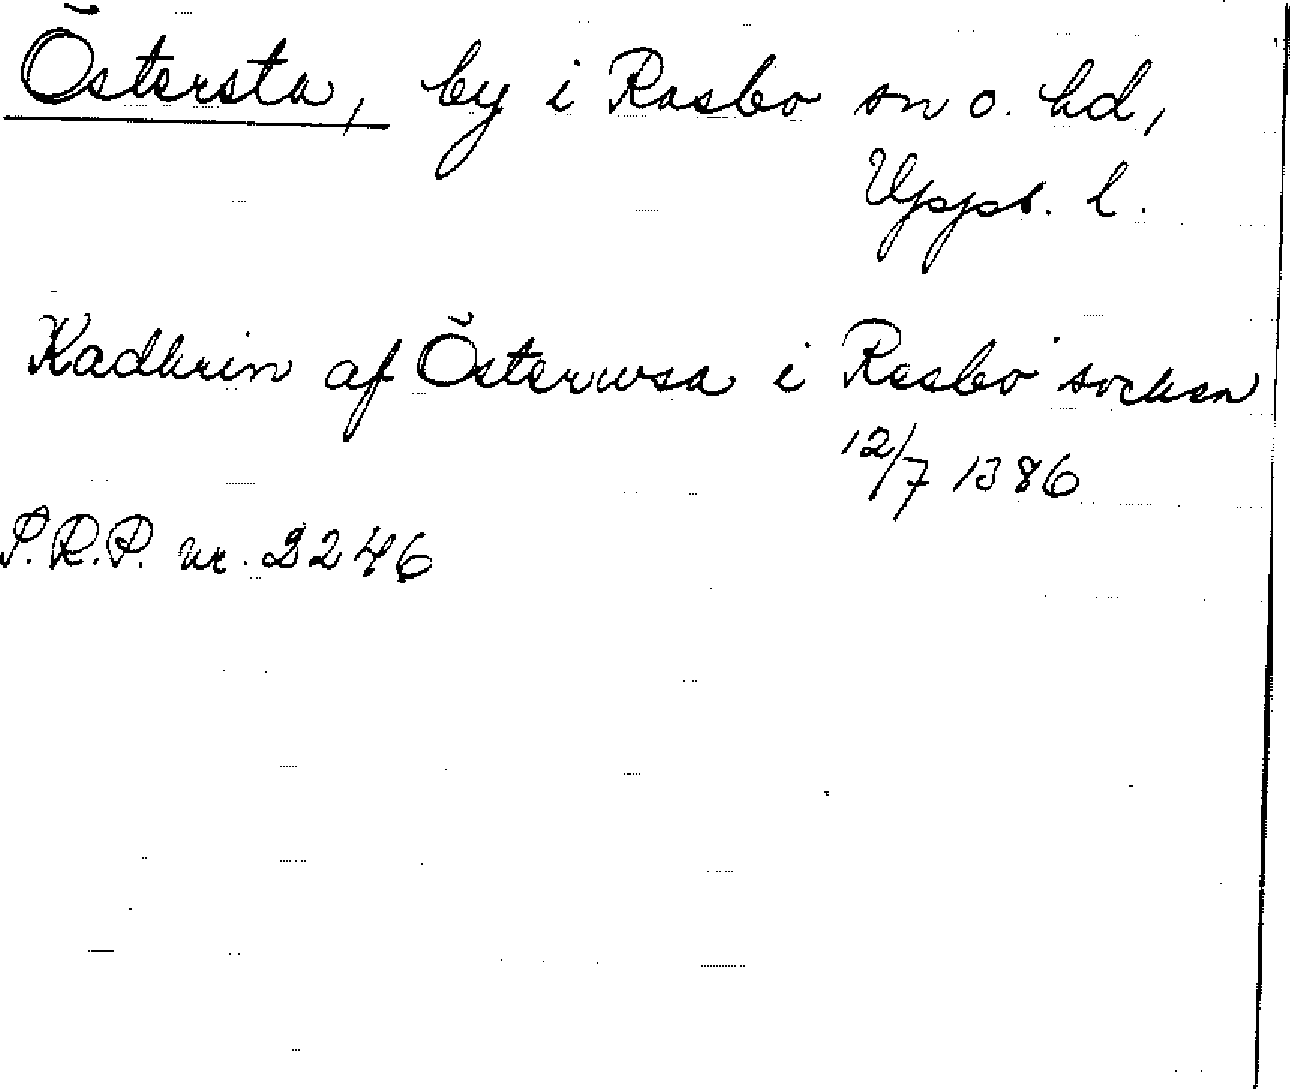 Östersta, by i Rasbo sn o. hd,
Uppsl. l.
Kadhrin af Østerwsa i Rasbo socken
12/7 1386
S.R.P. nr. 2246